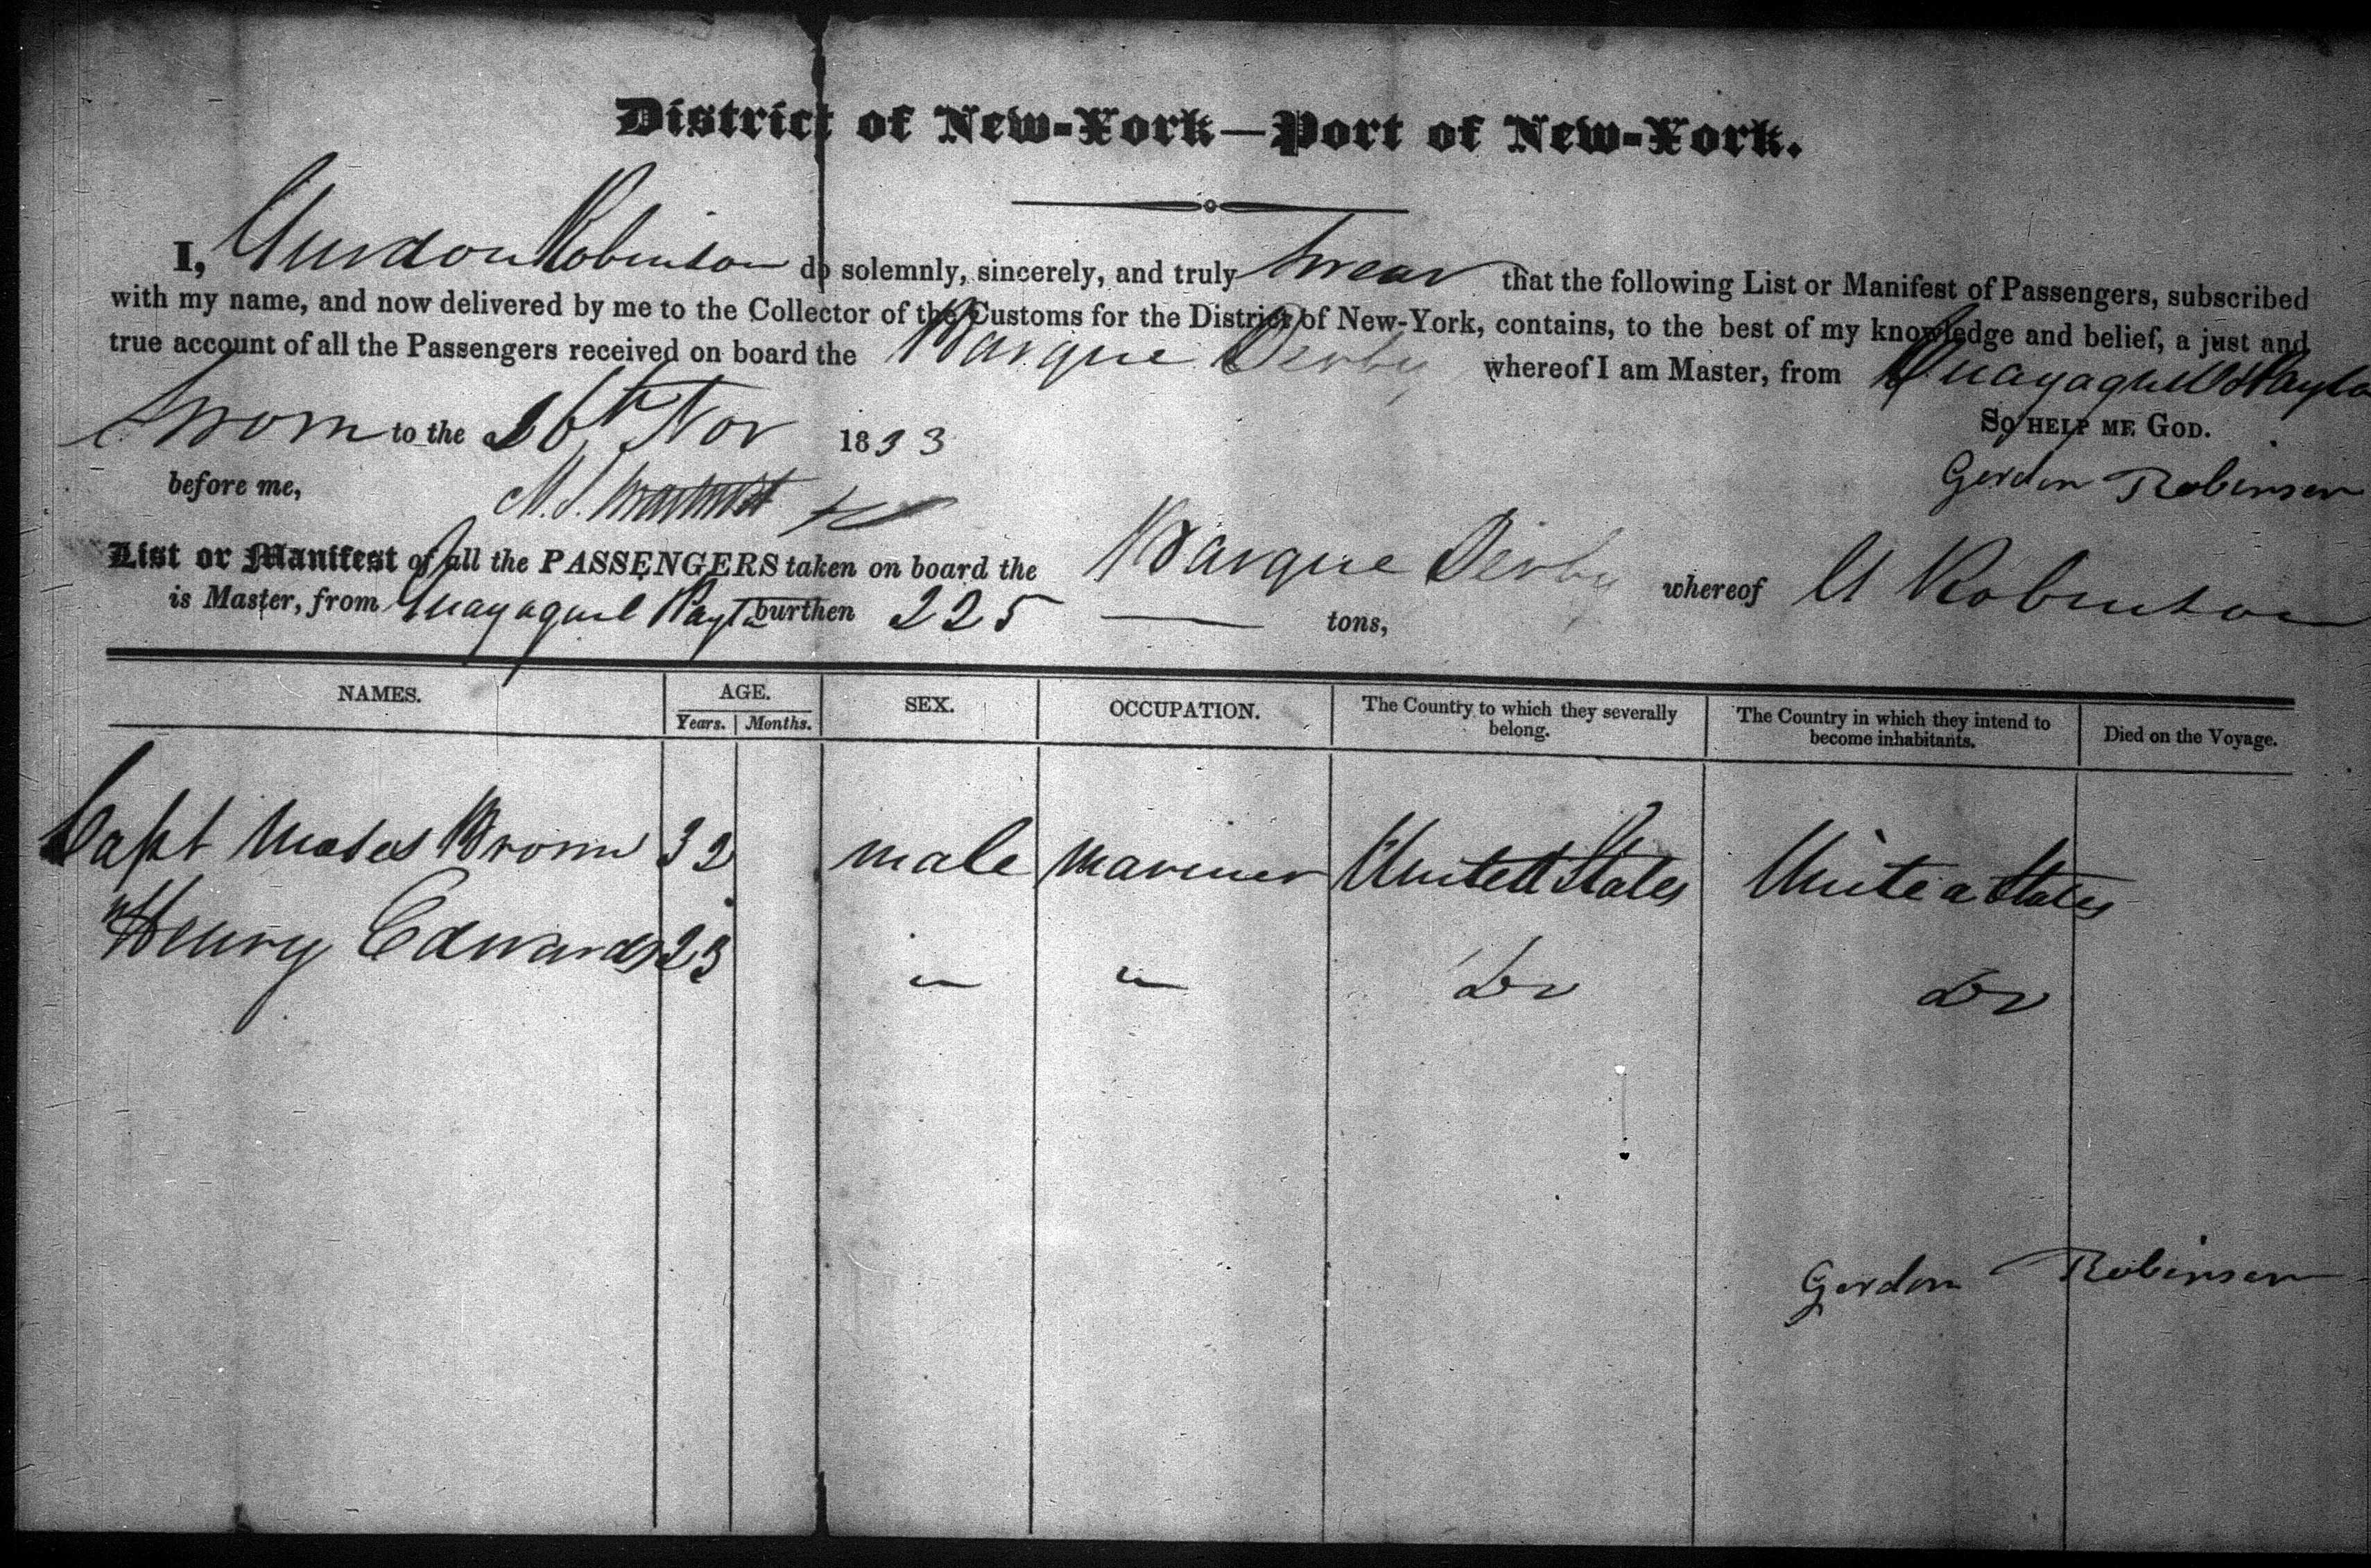 District of New-York—Port of New-York.
I, Gurdon Robinson do solemnly, sincerely, and truly swear that the following List or Manifest of Passengers, subscribed
with my name, and now delivered by me to the Collector of the Customs for the District of New-York, contains, to the best of my knowledge and belief, a just and
true account of all the Passengers received on board the Barque Derby whereof I am Master, from Guayaquil & Payta
Sworn to the 26th Nov 1833 So help me God.
before me, Gordon Robinson
List or Manifest of all the PASSENGERS taken on board the Barque Derby whereof G Robinson
is Master, from Guayaquil Payta burthen 225 tons,
NAMES. AGE. SEX. OCCUPATION. The Country to which they severally belong. The Country in which they intend to become inhabitants. Died on the Voyage.
Years. Months.
Capt Moses Brown 32 male mariner United States United States
" Henry Edwards 23 " " Do Do
Gordon Robinson